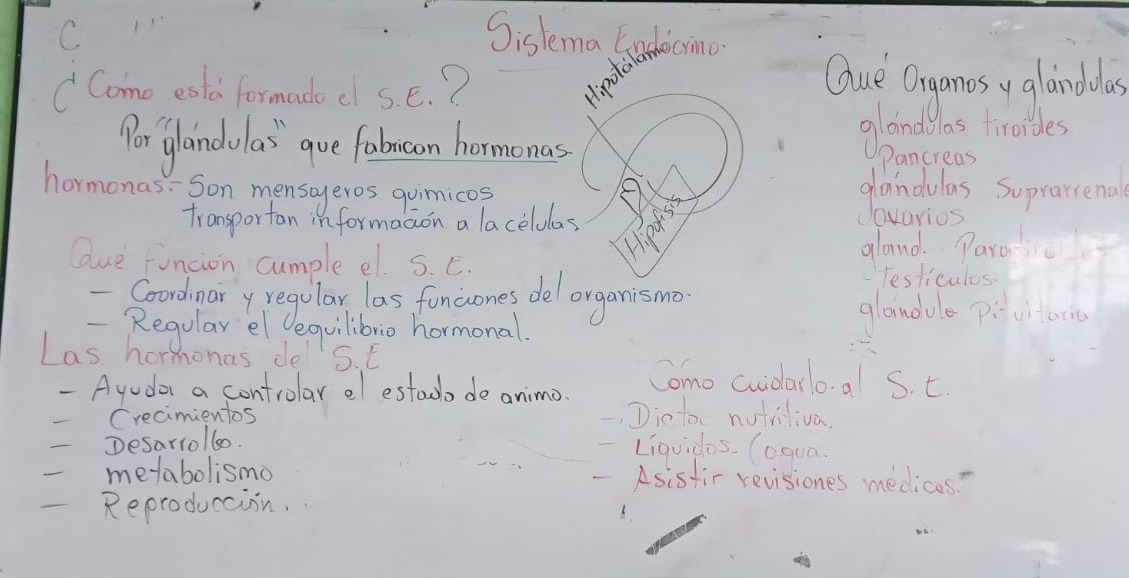 Sistema Endocrino.
¿Como está formado el S.E.?
Por "glándulas" que fabrican hormonas.
hormonas:- Son mensajeros quimicos
transportan información a la células
Hipotálamo
Hipofisis
Que función cumple el S.E.
- Coordinar y regular las funciones del organismo.
- Regular el equilibrio hormonal.
Las hormonas del S.E
- Ayuda a controlar el estado de animo.
- Crecimientos
- Desarrollo.
- metabolismo
- Reproducción.
Qué Organos y glándulas
glándulas tiroides
Pancreas
glándulas Suprarrenale
ovarios
gland.
Testiculos.
glándula Pituitaria
Cómo cuidarlo al S.E.
- Dieta nutritiva.
- Líquidos- (agua.
- Asistir revisiones médicas.